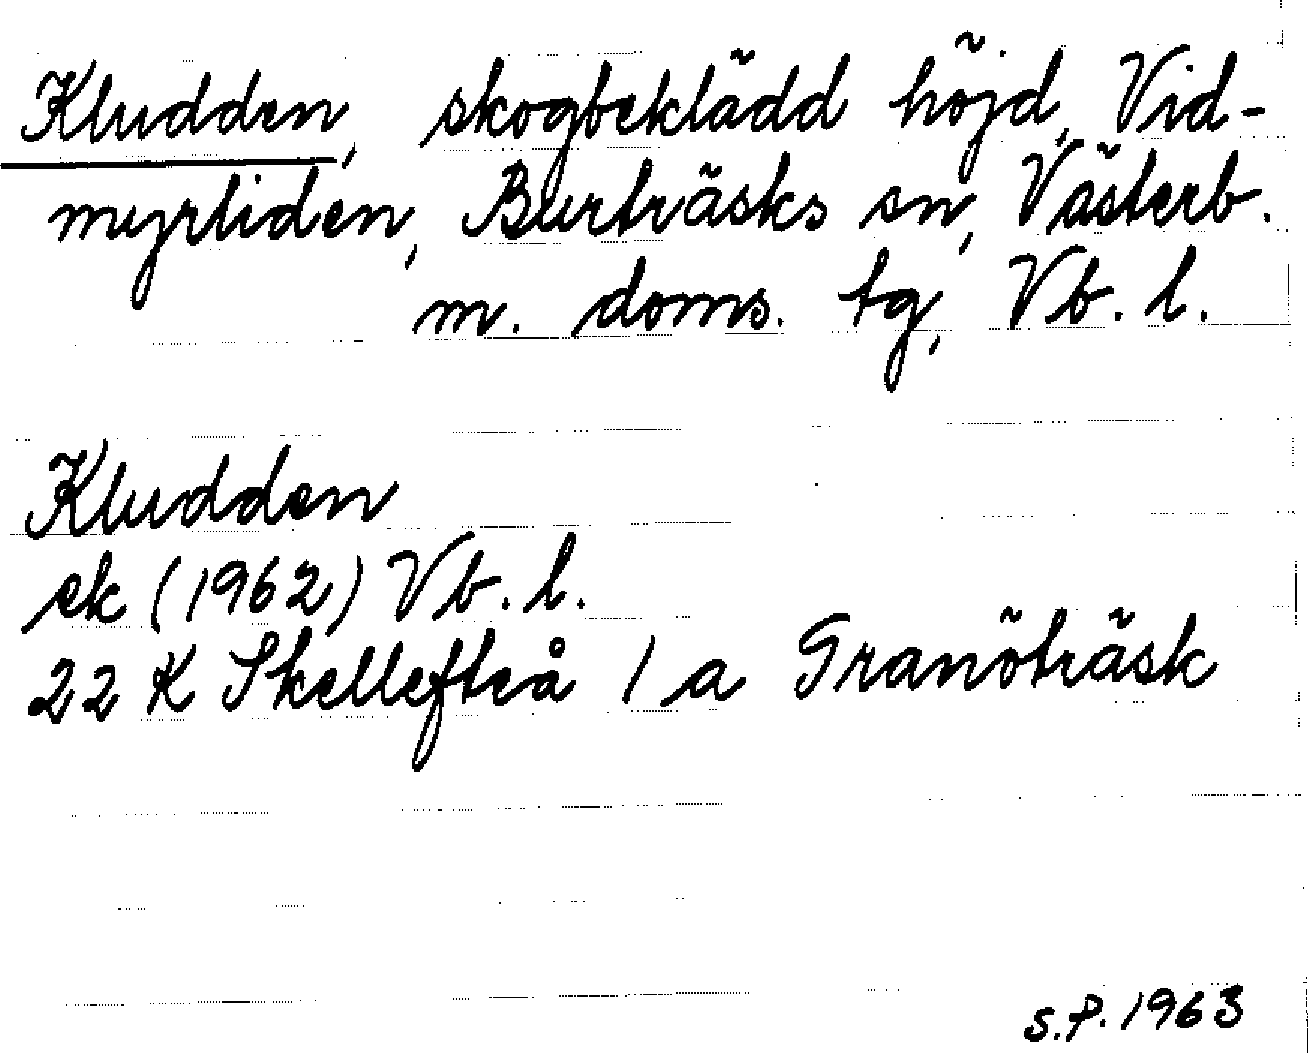 Kludden, skogbeklädd höjd, Vid-
myrliden, Burträsks sn, Västerb.
m. doms. tg, Vb. l.
Kludden
ek (1962) Vb. l.
22 K Skellefteå 1 a Granöträsk
S.P. 1963